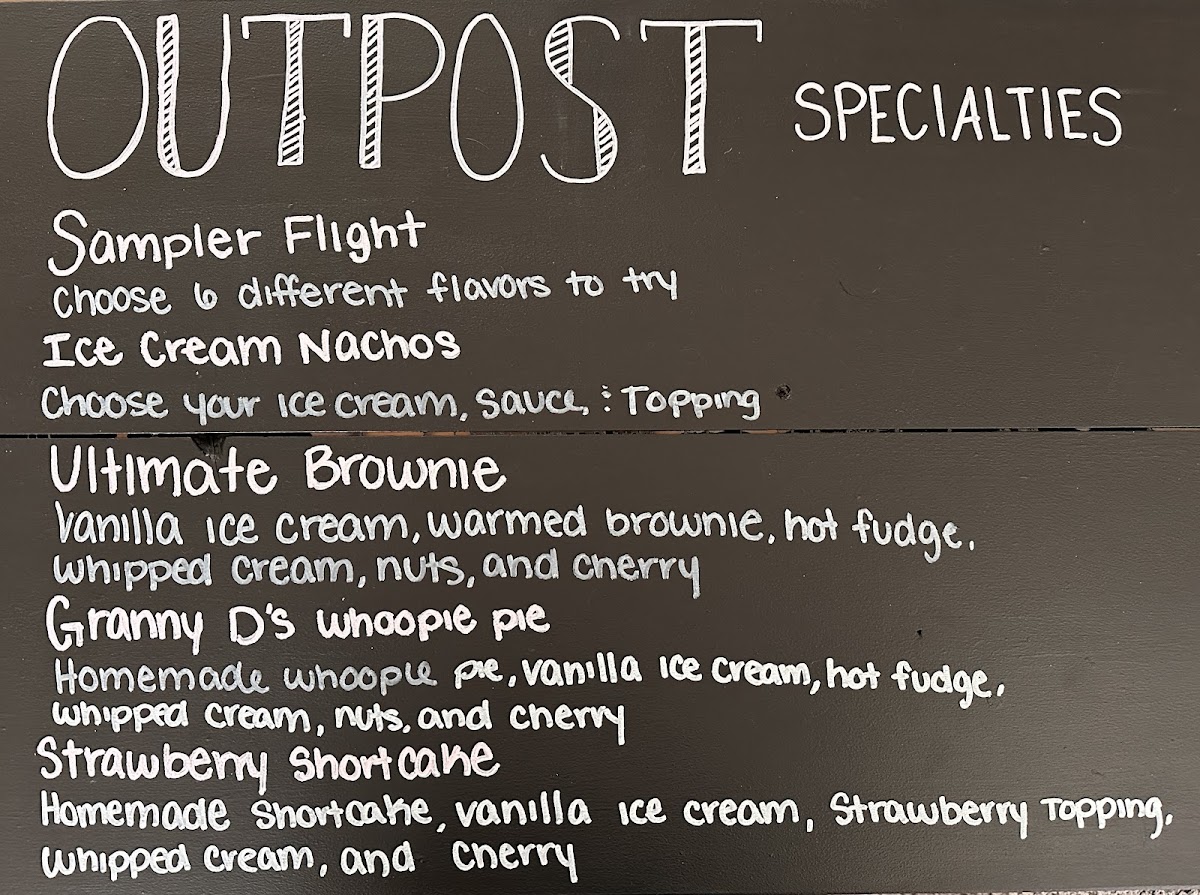 OUTPOST SPECIALTIES
Sampler Flight
Choose 6 different flavors to try
Ice Cream Nachos
Choose your ice cream, sauce, & Topping
Ultimate Brownie
Vanilla ice cream, warmed brownie, hot fudge,
whipped cream, nuts, and cherry
Granny D's whoopie pie
Homemade whoopie pie, vanilla ice cream, hot fudge,
whipped cream, nuts, and cherry
Strawberry Shortcake
Homemade Shortcake, vanilla ice cream, Strawberry Topping,
whipped cream, and cherry